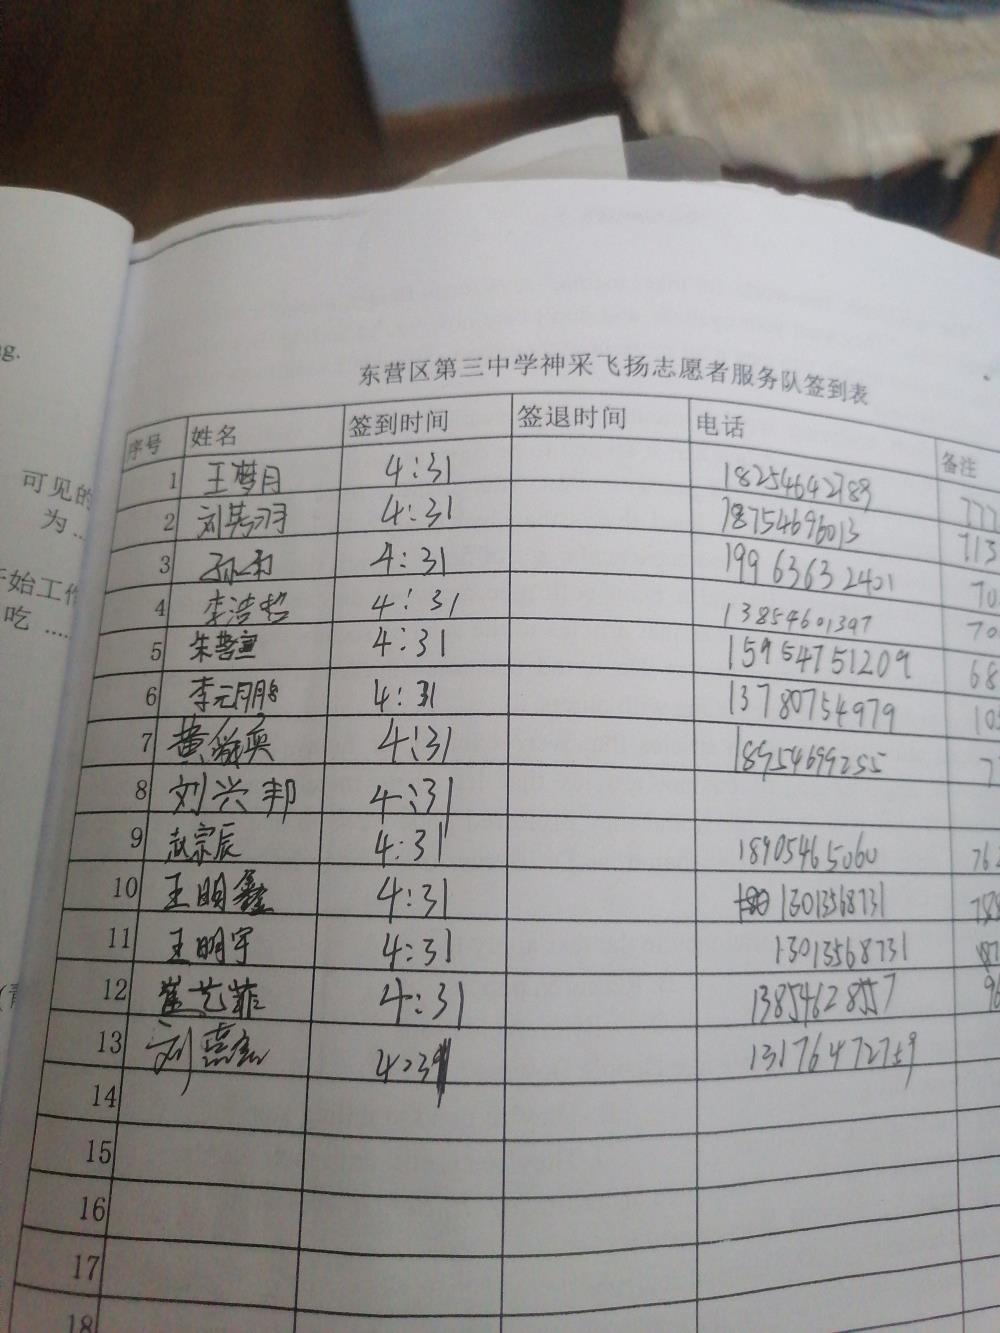 ng.
可见的
为 ...
开始工作
吃 ....
东营区第三中学神采飞扬志愿者服务队签到表
序号 姓名 签到时间 签退时间 电话 备注
1 王梦月 4:31 18254642789 777
2 4:31 18754696013 713
3 4:31 19963632401 70
4 李浩哲 4:31 13854601397 70
5 朱哲宣 4:31 15954751209 68
6 李元 4:31 13780754979 10
7 黄 4:31 18954699255 7
8 刘兴邦 4:31
9 赵宗辰 4:31 18905465060 76
10 王明鑫 4:31 13013568731
11 王明宇 4:31 13013568731
12 崔艺菲 4:31 13854628557 96
13 刘 4:3
14
15
16
17
18